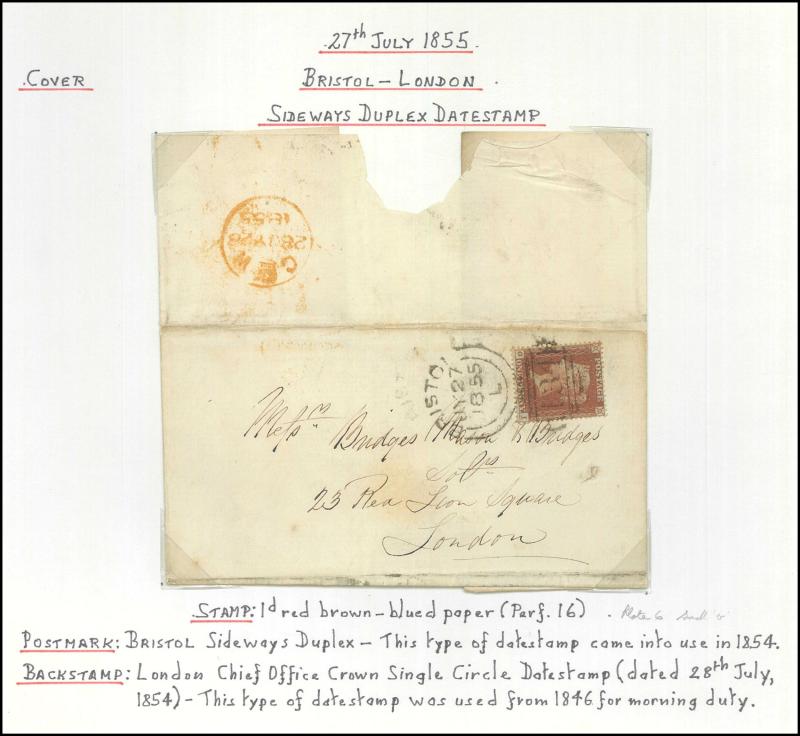 27th JULY 1855.
COVER
BRISTOL – LONDON
SIDEWAYS DUPLEX DATESTAMP
1855
28 JY 28
BRISTOL
JY 27
1855
L
POSTAGE
Messrs Bridges Mason & Bridges
Solrs
23 Red Lion Square
London
STAMP: 1d red brown – blued paper (Perf. 16) . Plate 6
POSTMARK: BRISTOL Sideways Duplex – This type of datestamp came into use in 1854.
BACKSTAMP: London Chief Office Crown Single Circle Datestamp (dated 28th July,
1854) – This type of datestamp was used from 1846 for morning duty.